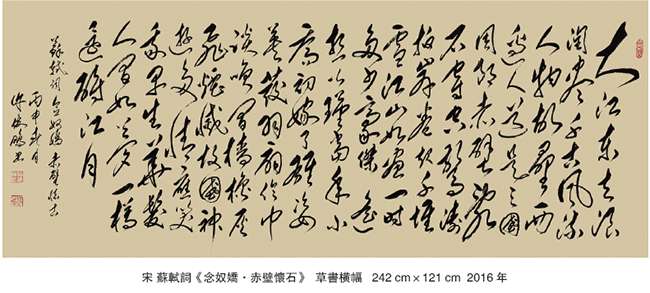 大江東去浪
淘盡千古風流
人物故壘西
邊人道是三國
周郎赤壁亂
石穿空驚濤
拍岸卷起千堆
雪江山如畫一時
多少豪傑遙
想公瑾當年小
喬初嫁了雄姿
英發羽扇綸巾
談笑間檣櫓灰
飛煙滅故國神
遊多情應笑
我早生華髮
人間如夢一樽
還酹江月
蘇軾詞念奴嬌赤壁懷古
丙申 月
鵬書
宋 蘇軾詞《念奴嬌・赤壁懷石》 草書横幅 242 cm × 121 cm 2016 年